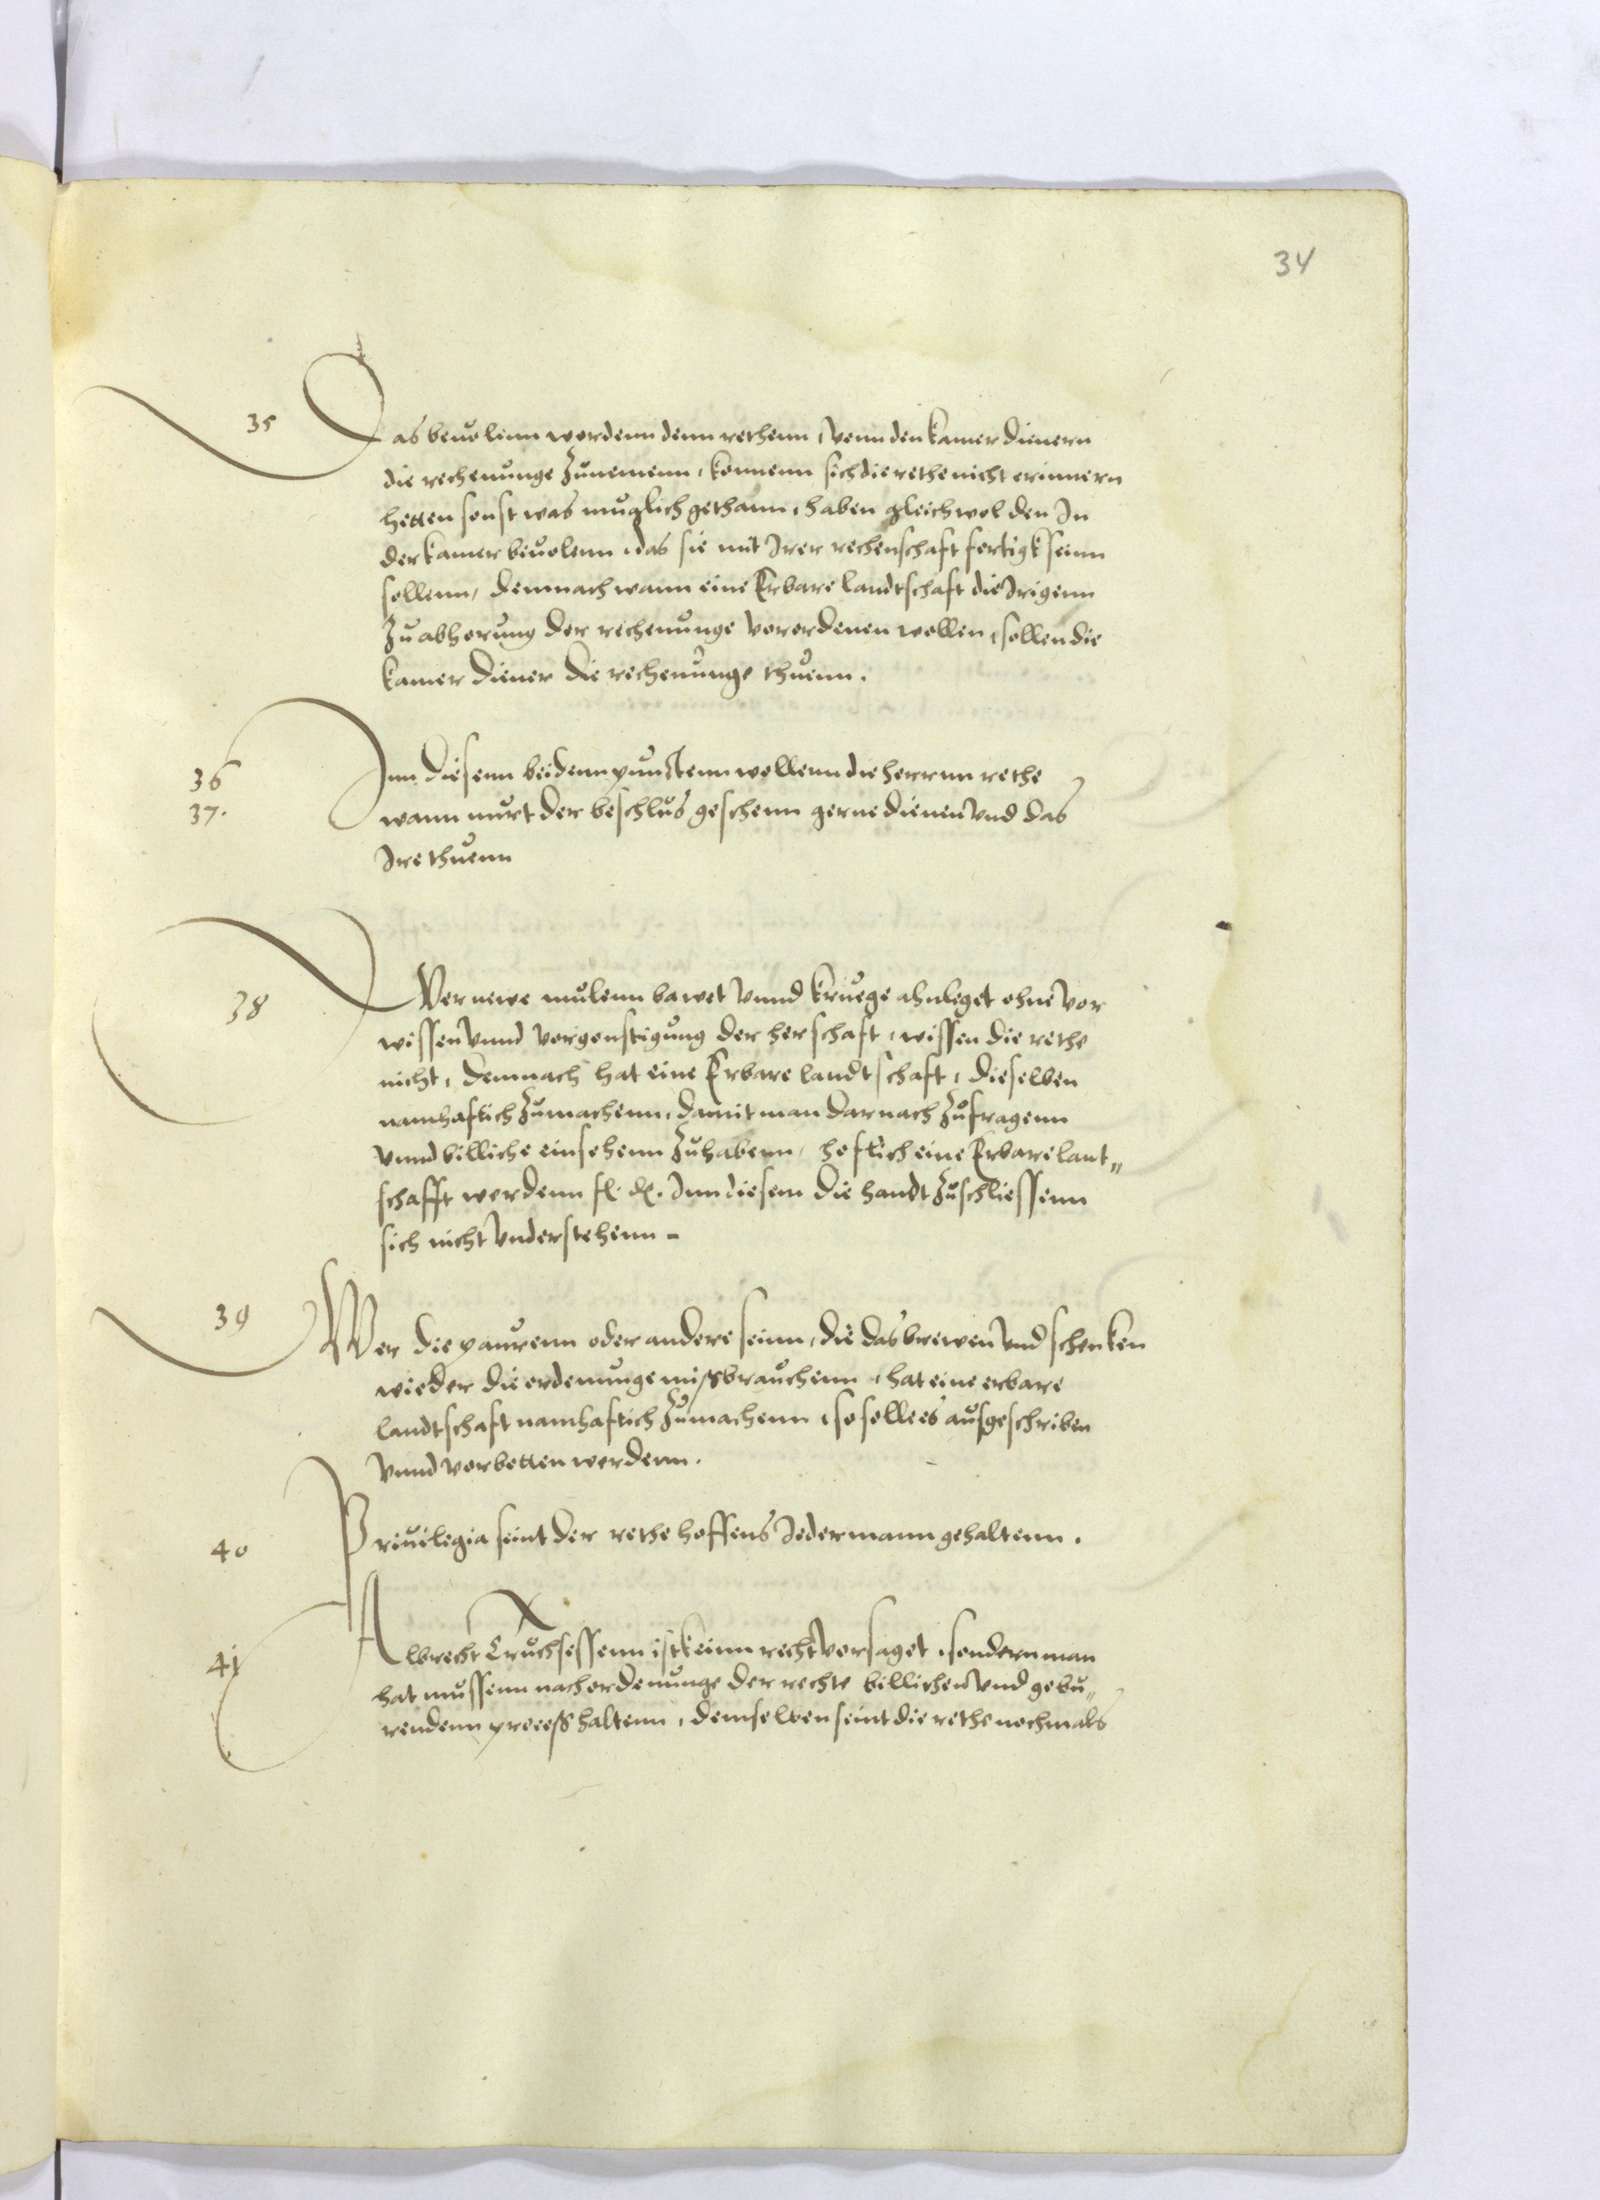 34
35 Das beuolenn wordenn denn rethenn, venn den kamer dienern
die rechenunge Zunemenn, konnenn sich die rethe nicht erinnern
hetten sonst was muglich gethann, haben gleichwol den In
der kamer beuolenn das sie mit Irer rechenschaft fertigk seinn
sollenn, demnach wann eine Erbare landtschaft die Irigenn
Zu abhorung der rechenunge verordenen wollen, sollen die
kamer diener die rechenunge thuenn.
36 Inn diesenn beidenn puncktenn wollenn die herrnn rethe
37. wann nurt der beschlus geschenn gerne dienen vnd das
Ire thuenn
38 Wer newe mulenn bawet vnnd kruege ahnleget ohne vor
wissen vnnd vorgonstigung der herschaft, wissen die rethe
nicht, demnach hat eine Erbare landtschaft, dieselben
namhaftich Zumachenn, damit man darnach Zufragenn
vnnd billiche einsehenn Zuhabenn, hoflich eine Erbare lant„
schafft werdenn fl. d. Inn diesem die handt Zuschliessenn
sich nicht vnderstehenn -
39 Wer die paurenn oder andere seinn, die das brewen vnd schenken
wieder die ordenunge missbrauchenn, hat eine erbare
landtschaft namhaftich Zumachenn, so solle es ausgeschriben
vnnd vorbotten werdenn.
40 Priuilegia seint der rethe hoffens Iedermann gehaltenn.
41 Albrecht Truchsessenn ist keinn recht vorsaget, sondern man
hat mussenn nach ordenunge der rechte billichen vnd gebu„
rendenn process haltenn, demselben seint die rethe nochmals